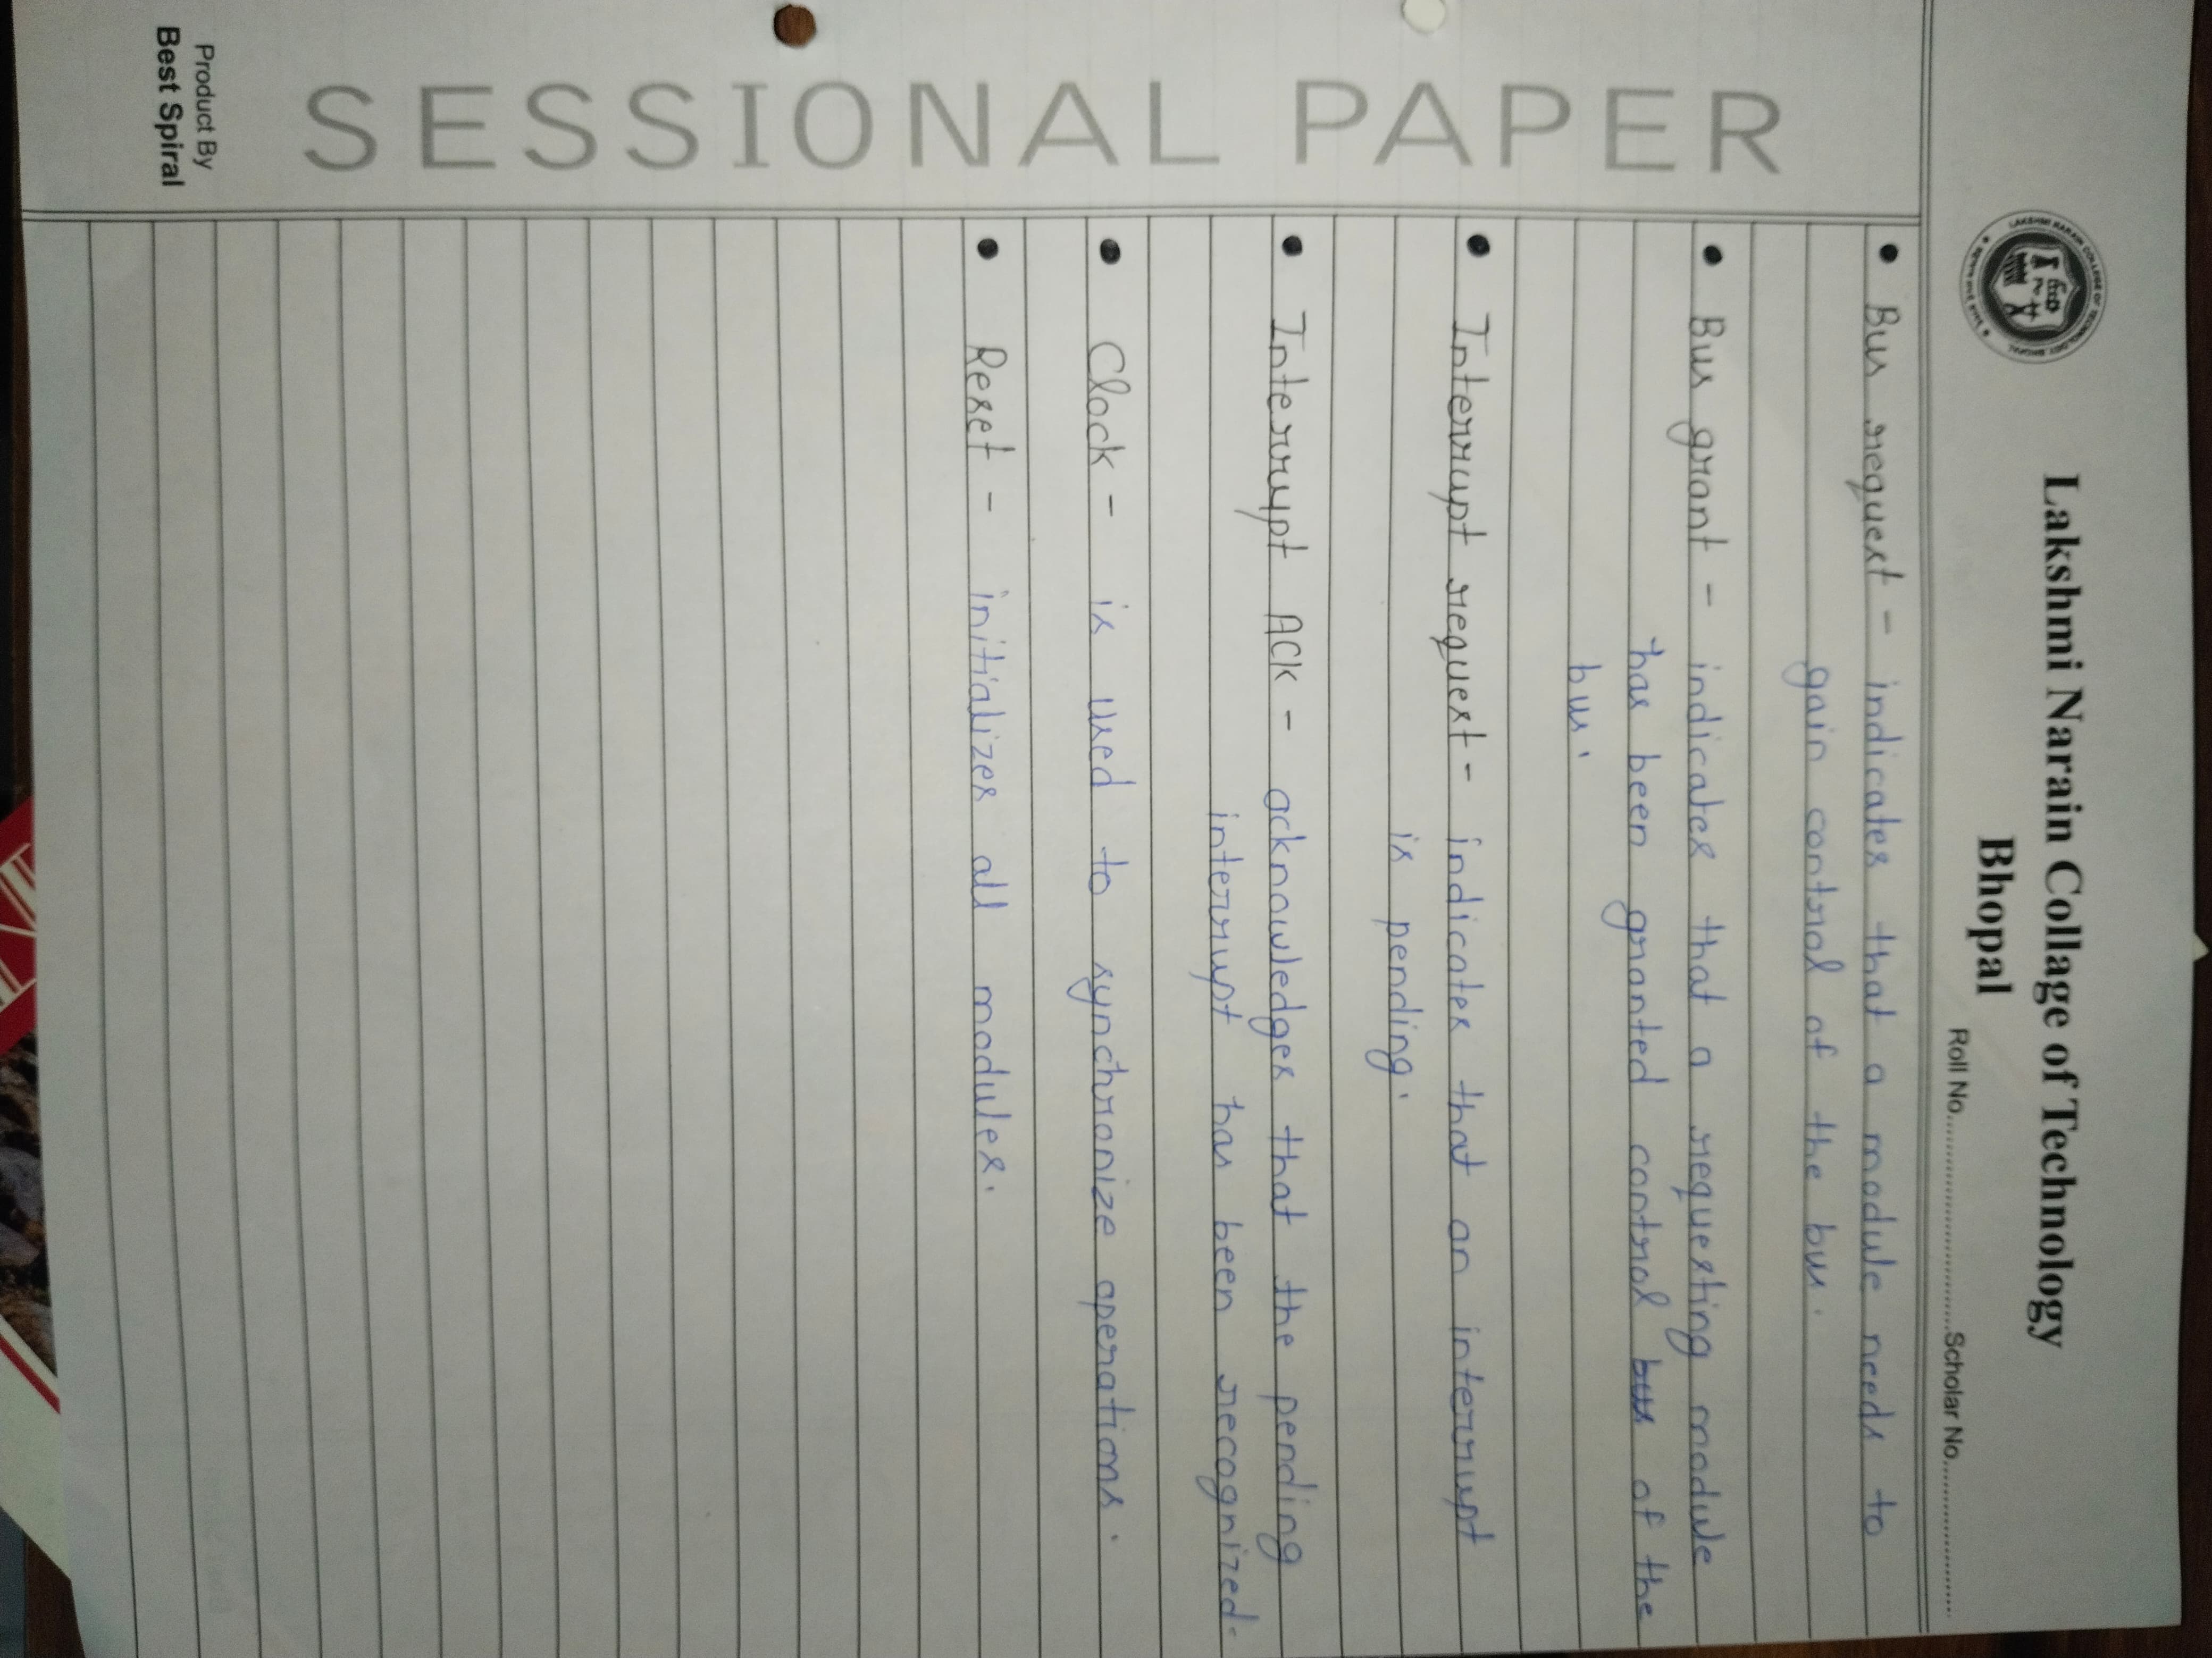 Lakshmi Narain Collage of Technology
Bhopal
Roll No..............................Scholar No.....................
LAKSHMI NARAIN COLLEGE OF TECHNOLOGY BHOPAL
• Bus request - indicates that a module needs to
gain control of the bus.
• Bus grant - indicates that a requesting module
has been granted control bus of the
bus.
• Interrupt request - indicates that an interrupt
is pending.
• Interrupt ACK - acknowledges that the pending
interrupt has been recognized.
• Clock - is used to synchronize operations.
• Reset - initializes all modules.
SESSIONAL PAPER
Product By
Best Spiral